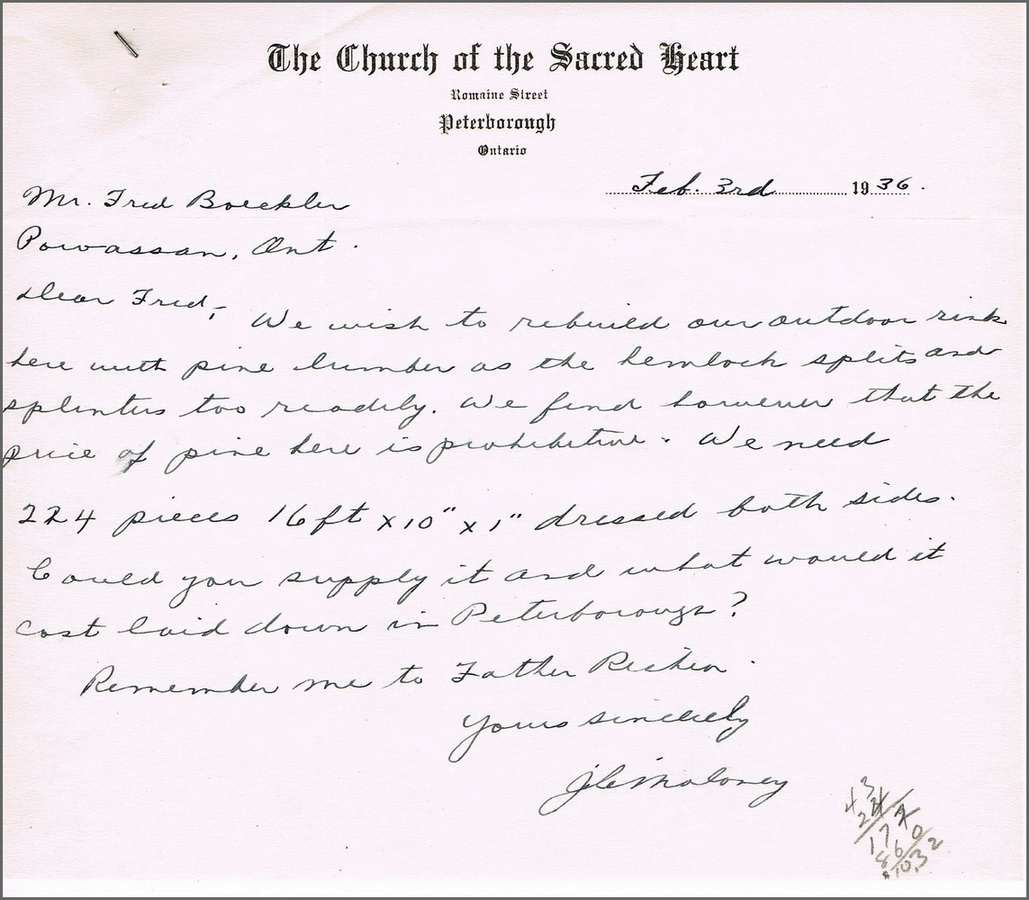 The Church of the Sacred Heart
Romaine Street
Peterborough
Ontario
Feb. 3rd 1936.
Mr. Fred Boeckler
Powassan, Ont.
Dear Fred;
We wish to rebuild our outdoor rink
here with pine lumber as the hemlock splits and
splinters too readily. We find however that the
price of pine here is prohibitive. We need
224 pieces 16 ft x 10" x 1" dressed both sides.
Could you supply it and what would it
cost laid down in Peterborough?
Remember me to Father
Yours sincerely
Maloney